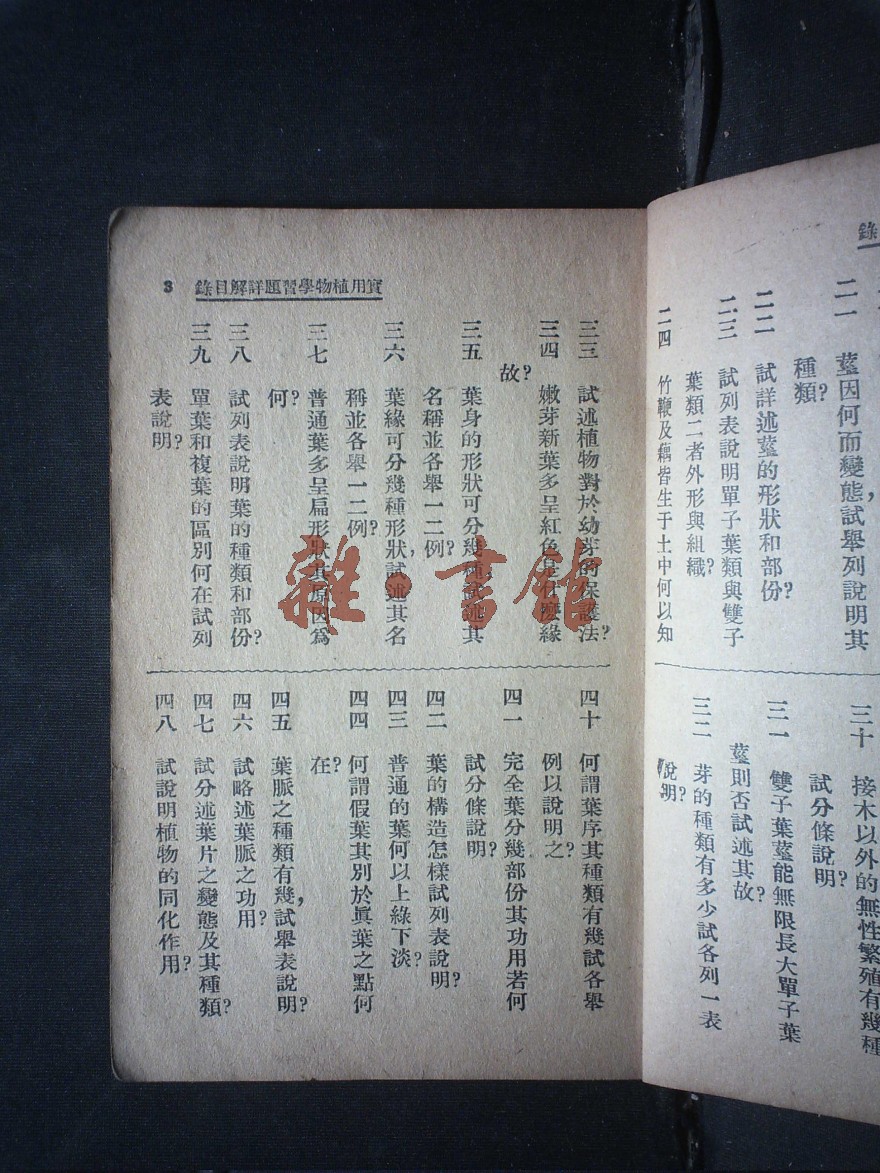 錄
二一 莖因何而變態，試舉列說明其
種類？
二二 試詳述莖的形狀和部份？
二三 試列表說明單子葉類與雙子
葉類二者外形與組織？
二四 竹鞭及藕皆生于土中何以知
三十 接木以外的無性繁殖有幾種
試分條說明？
三一 雙子葉莖能無限長大單子葉
莖則否試述其故？
三二 芽的種類有多少試各列一表
說明？
實用植物學習題詳解目錄 3
三三 試述植物對於幼芽的保護法？
三四 嫩芽新葉多呈紅色是什麼緣
故？
三五 葉身的形狀可分幾種，試述其
名稱並各舉一二例？
三六 葉緣可分幾種形狀，試述其名
稱並各舉一二例？
三七 普通葉多呈扁形狀其原因爲
何？
三八 試列表說明葉的種類和部份？
三九 單葉和複葉的區別何在試列
表說明？
四十 何謂葉序其種類有幾試各舉
例以說明之？
四一 完全葉分幾部份其功用若何
試分條說明？
四二 葉的構造怎樣試列表說明？
四三 普通的葉何以上綠下淡？
四四 何謂假葉其別於眞葉之點何
在？
四五 葉脈之種類有幾，試舉表說明？
四六 試略述葉脈之功用？
四七 試分述葉片之變態及其種類？
四八 試說明植物的同化作用？
雜·書館